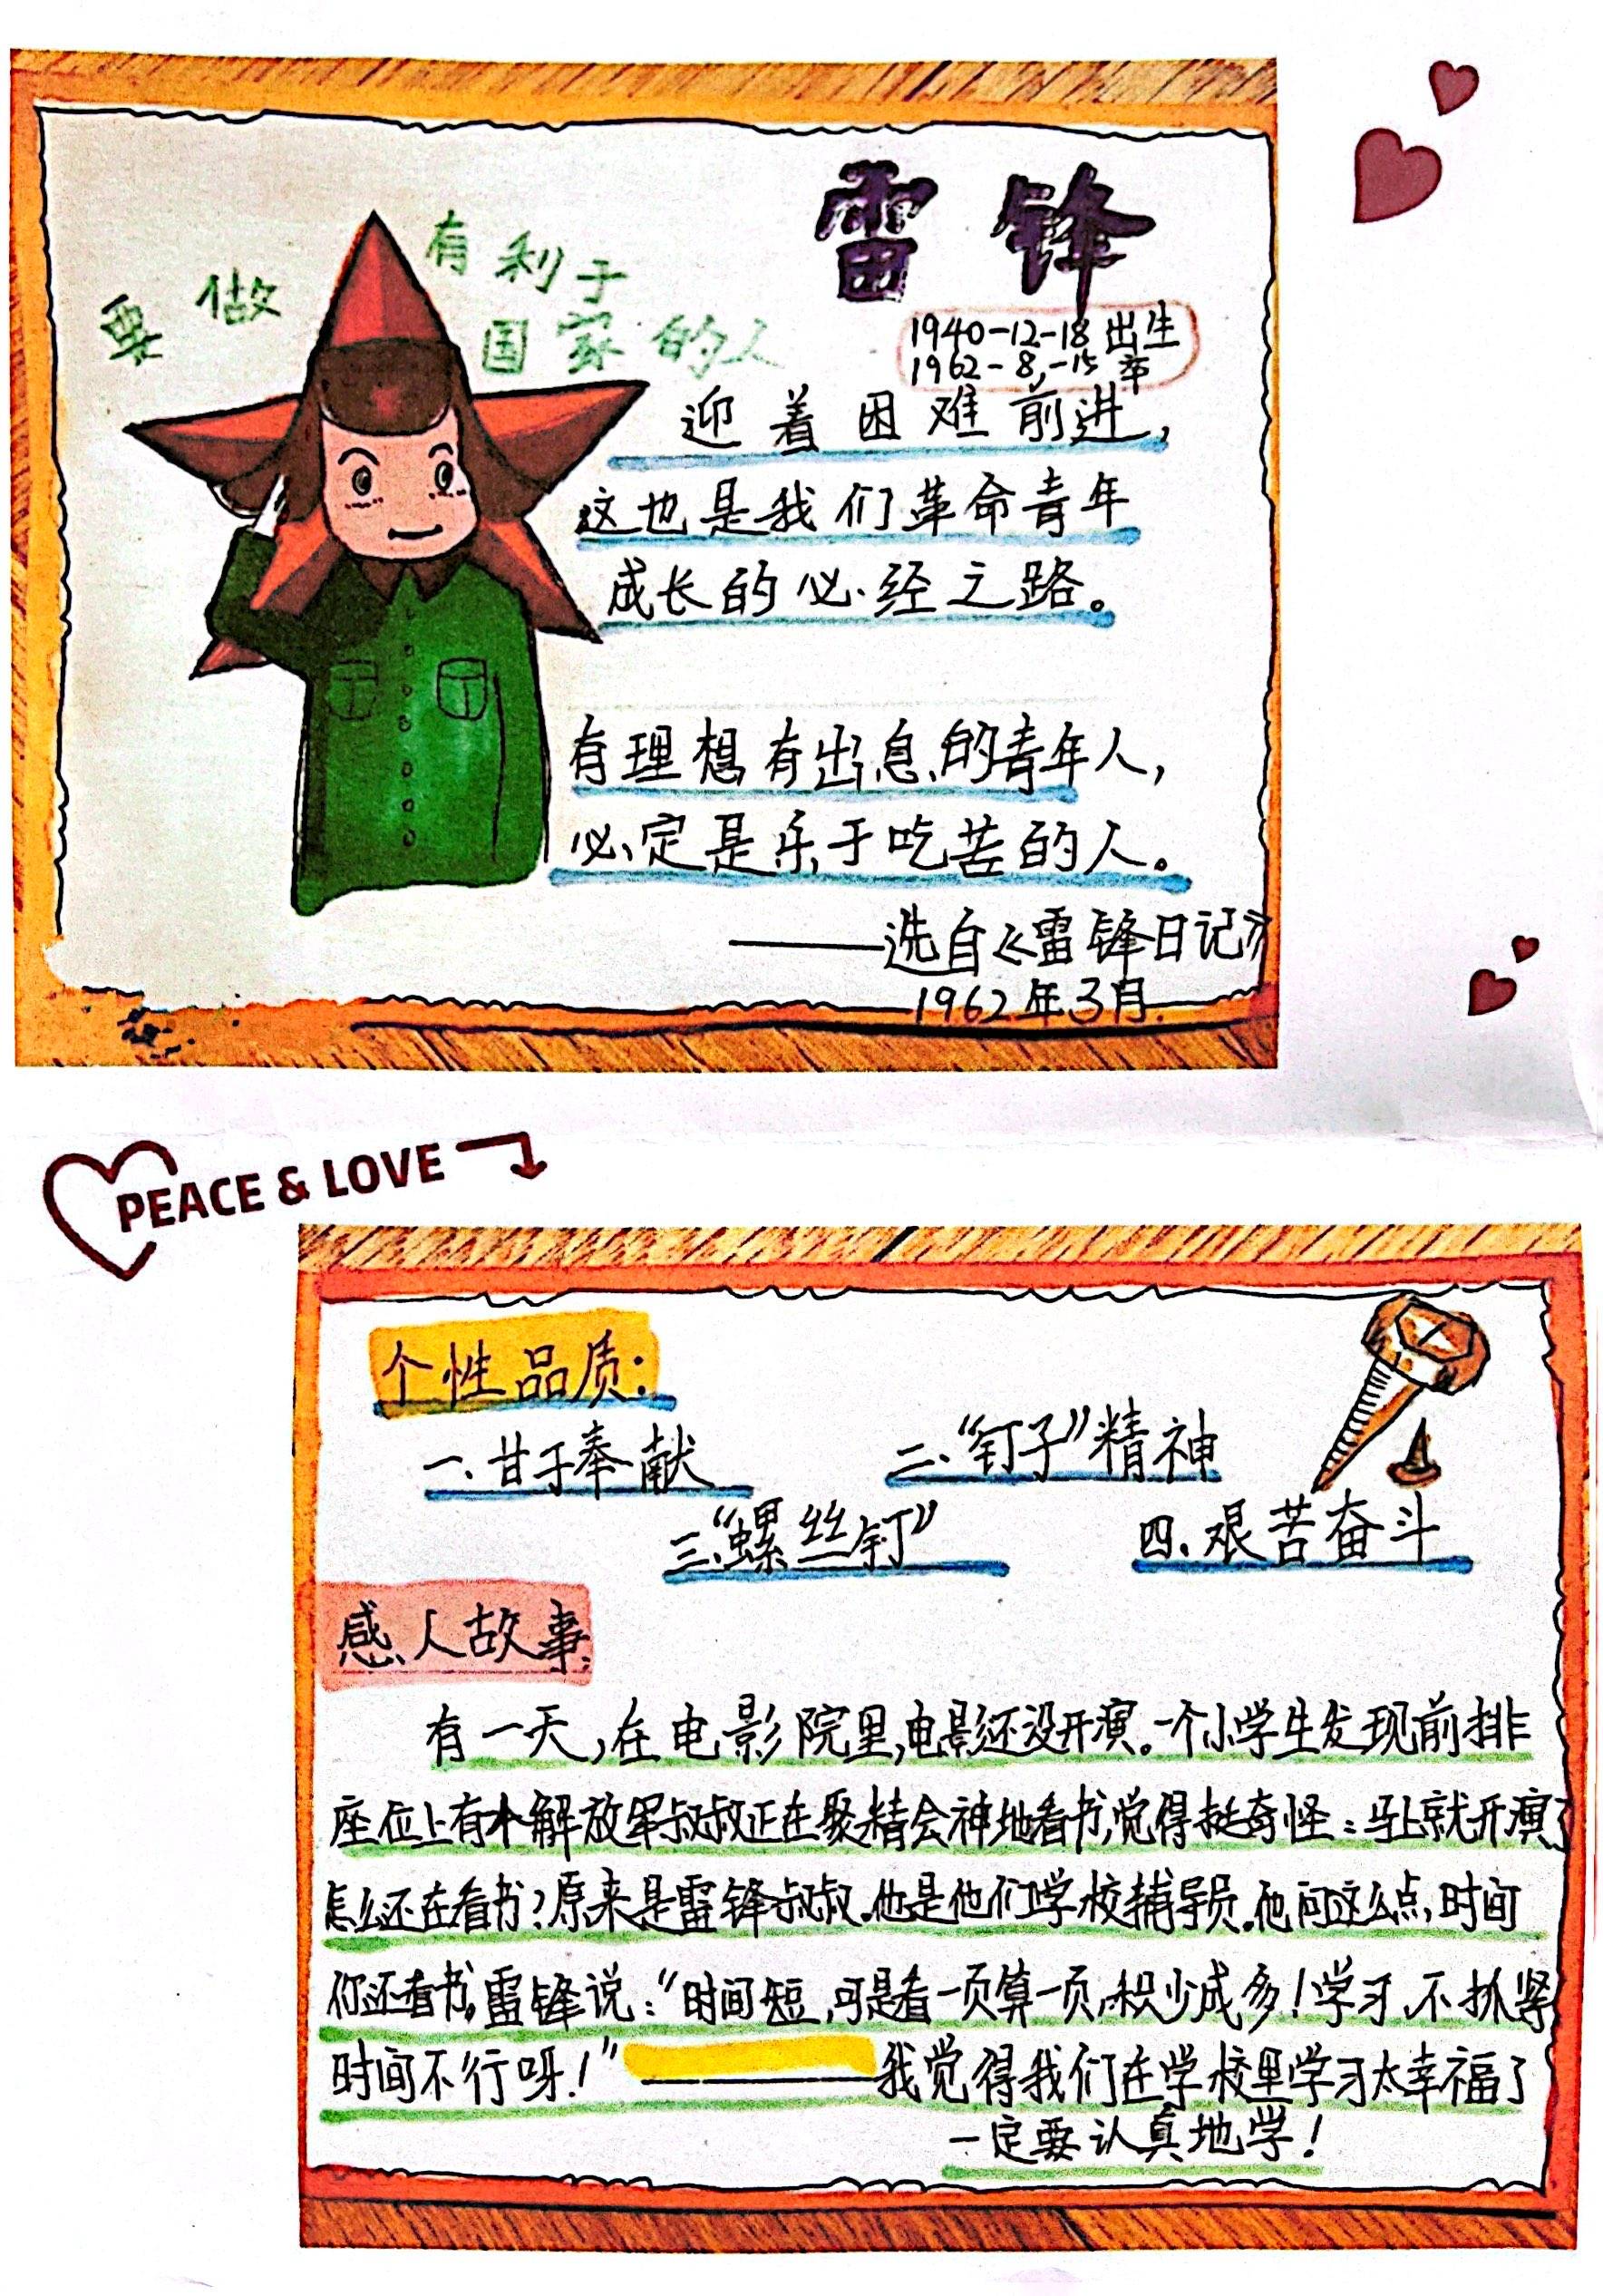 雷锋
要做有利于
国家的人
1940-12-18出生
1962-8,-15卒
迎着困难前进,
这也是我们革命青年
成长的必经之路。
有理想有出息的青年人,
必定是乐于吃苦的人。
——选自《雷锋日记》
1962年3月.
PEACE & LOVE
个性品质:
一.甘于奉献
二、“钉子”精神
三、“螺丝钉”
四.艰苦奋斗
感人故事:
有一天,在电影院里,电影还没开演。一个小学生发现前排
座位上有个解放军叔叔正在聚精会神地看书,觉得挺奇怪:马上就开演了
怎么还在看书?原来是雷锋叔叔.他是他们学校辅导员.他问这么点,时间
你还看书,雷锋说:“时间短,可是看一页算一页,积少成多!学习,不抓紧
时间不行呀!”——我觉得我们在学校里学习太幸福了
一定要认真地学!